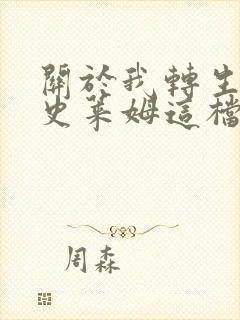 關於我轉生
史萊姆這檔
周森